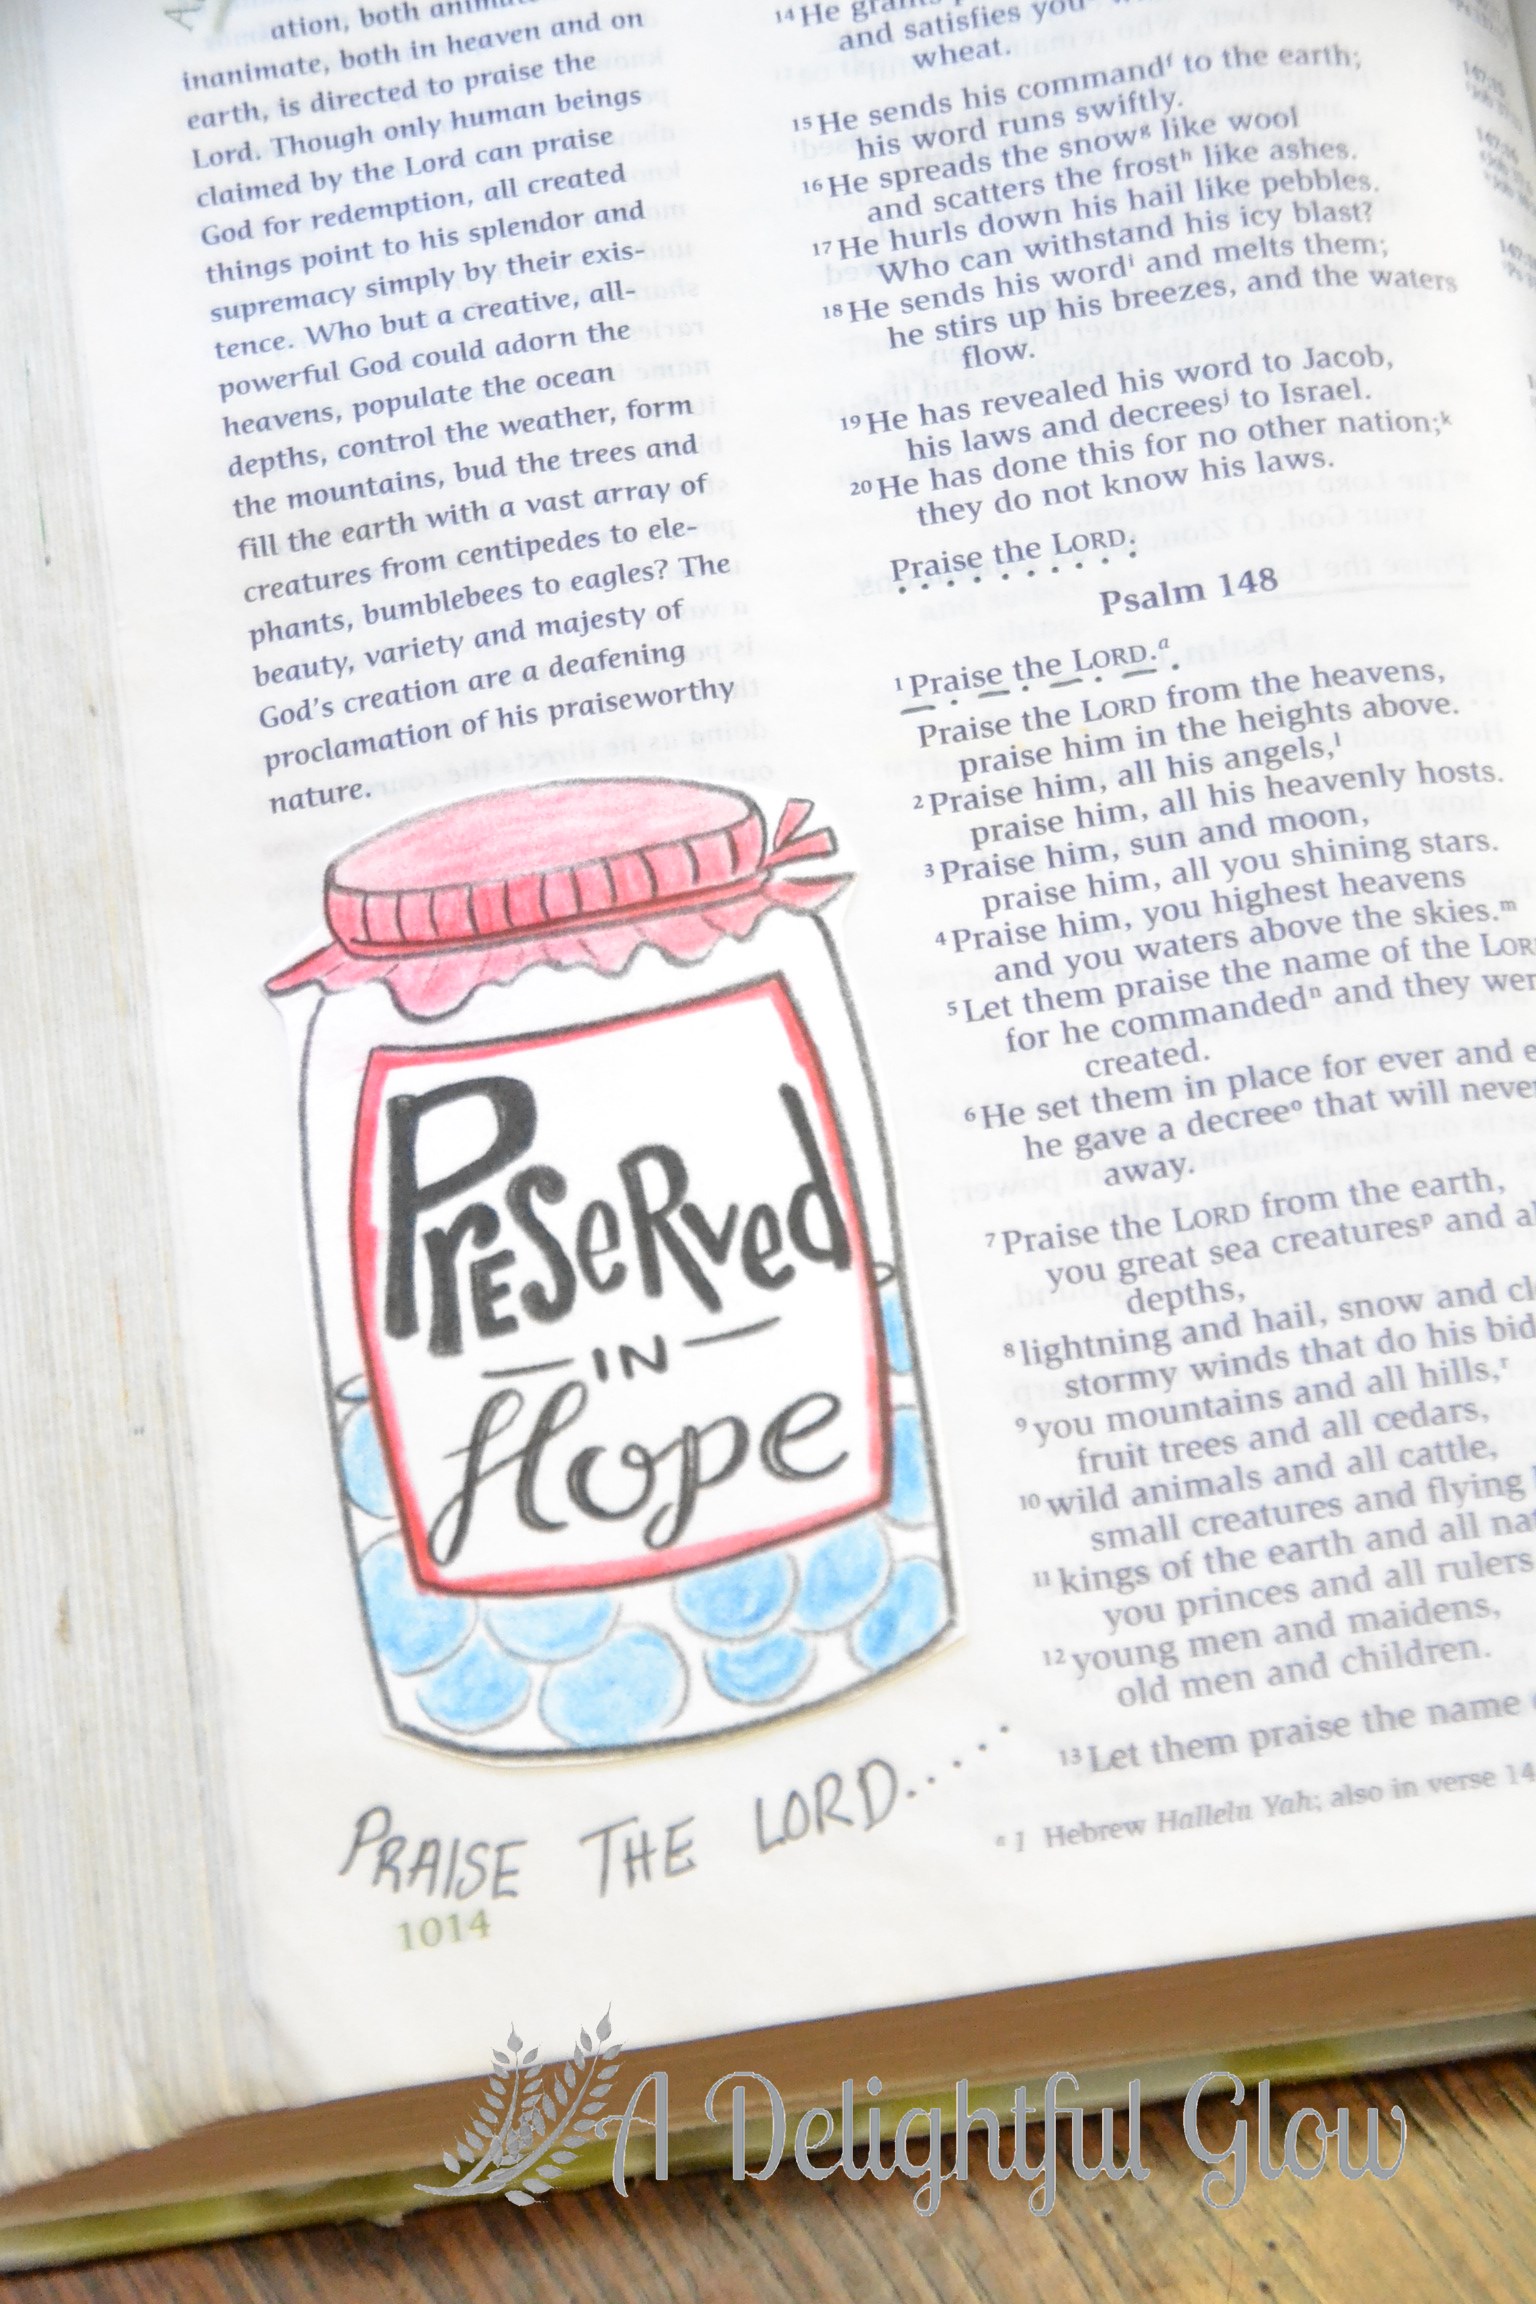 ation, both
inanimate, both in heaven and on
earth, is directed to praise the
Lord. Though only human beings
claimed by the Lord can praise
God for redemption, all created
things point to his splendor and
supremacy simply by their exis-
tence. Who but a creative, all-
powerful God could adorn the
heavens, populate the ocean
depths, control the weather, form
the mountains, bud the trees and
fill the earth with a vast array of
creatures from centipedes to ele-
phants, bumblebees to eagles? The
beauty, variety and majesty of
God's creation are a deafening
proclamation of his praiseworthy
nature.
PReSeRved
IN
Hope
PRAISE THE LORD.....
1014
14 He grants
and satisfies you
wheat.
15 He sends his command f to the earth;
his word runs swiftly.
16 He spreads the snow g like wool
and scatters the frost h like ashes.
17 He hurls down his hail like pebbles.
Who can withstand his icy blast?
18 He sends his word i and melts them;
he stirs up his breezes, and the waters
flow.
19 He has revealed his word to Jacob,
his laws and decrees j to Israel.
20 He has done this for no other nation; k
they do not know his laws.
Praise the LORD.
Psalm 148
1 Praise the LORD. a
Praise the LORD from the heavens,
praise him in the heights above.
2 Praise him, all his angels, l
praise him, all his heavenly hosts.
3 Praise him, sun and moon,
praise him, all you shining stars.
4 Praise him, you highest heavens
and you waters above the skies. m
5 Let them praise the name of the LOR
for he commanded n and they wer
created.
6 He set them in place for ever and e
he gave a decree o that will never
away.
7 Praise the LORD from the earth,
you great sea creatures p and al
depths,
8 lightning and hail, snow and cl
stormy winds that do his bid
9 you mountains and all hills, r
fruit trees and all cedars,
10 wild animals and all cattle,
small creatures and flying
11 kings of the earth and all nat
you princes and all rulers
12 young men and maidens,
old men and children.
13 Let them praise the name
a 1 Hebrew Hallelu Yah; also in verse 14
A Delightful Glow